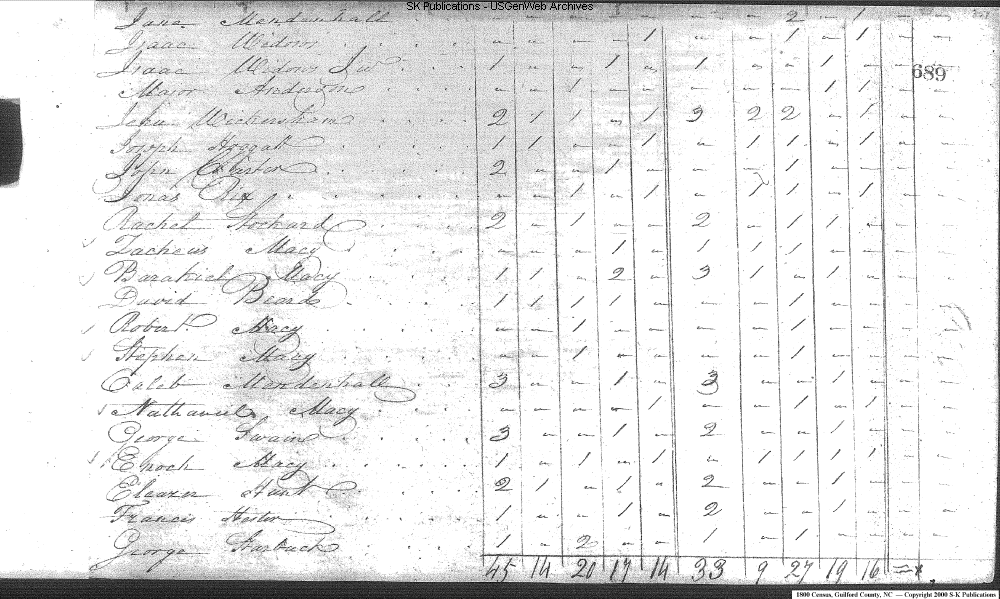 SK Publications - USGenWeb Archives
Jane Mendenhall - - - - - - - 2 - 1 - -
Isaac Widows - - - - 1 - - 1 - 1 - -
Isaac Widows Jur 1 - - 1 - 1 - - 1 - - -
689
Major Anderson - - 1 - - - - - 1 1 - -
John Wickersham 2 1 1 - 1 3 2 2 - 1 - -
Joseph Hoggatt 1 1 - - 1 - 1 1 - 1 - -
John 2 - - 1 - - - 1 - - - -
Jonas Rix - - 1 - 1 - 1 1 - 1 - -
Rachel Stockard 2 - 1 - - 2 - 1 1 - - -
Zacheus Macy - - - 1 - 1 1 1 - - - -
Barakiel Macy 1 1 - 2 - 3 1 - 1 - - -
David Beard 1 1 1 1 - - - 1 - - - -
Robert Macy - - 1 - - - - 1 - - - -
Stephen Macy - - 1 - - - - 1 - - - -
Caleb Mendenhall 3 - - 1 - 3 - - 1 - - -
Nathaniel Macy - - - - 1 - - 1 - 1 - -
George Swain 3 - - 1 - 2 - - 1 - - -
Enoch Macy 1 - 1 - 1 - 1 1 1 1 - -
Eleazer Hunt 2 1 - 1 - 2 - - 1 - - -
Francis Hester 1 - - 1 - 2 - - 1 - - -
George Starbuck 1 - 2 - - 1 - 1 - - - -
45 14 20 17 14 33 9 27 19 16
1800 Census, Guilford County, NC — Copyright 2000 S-K Publications